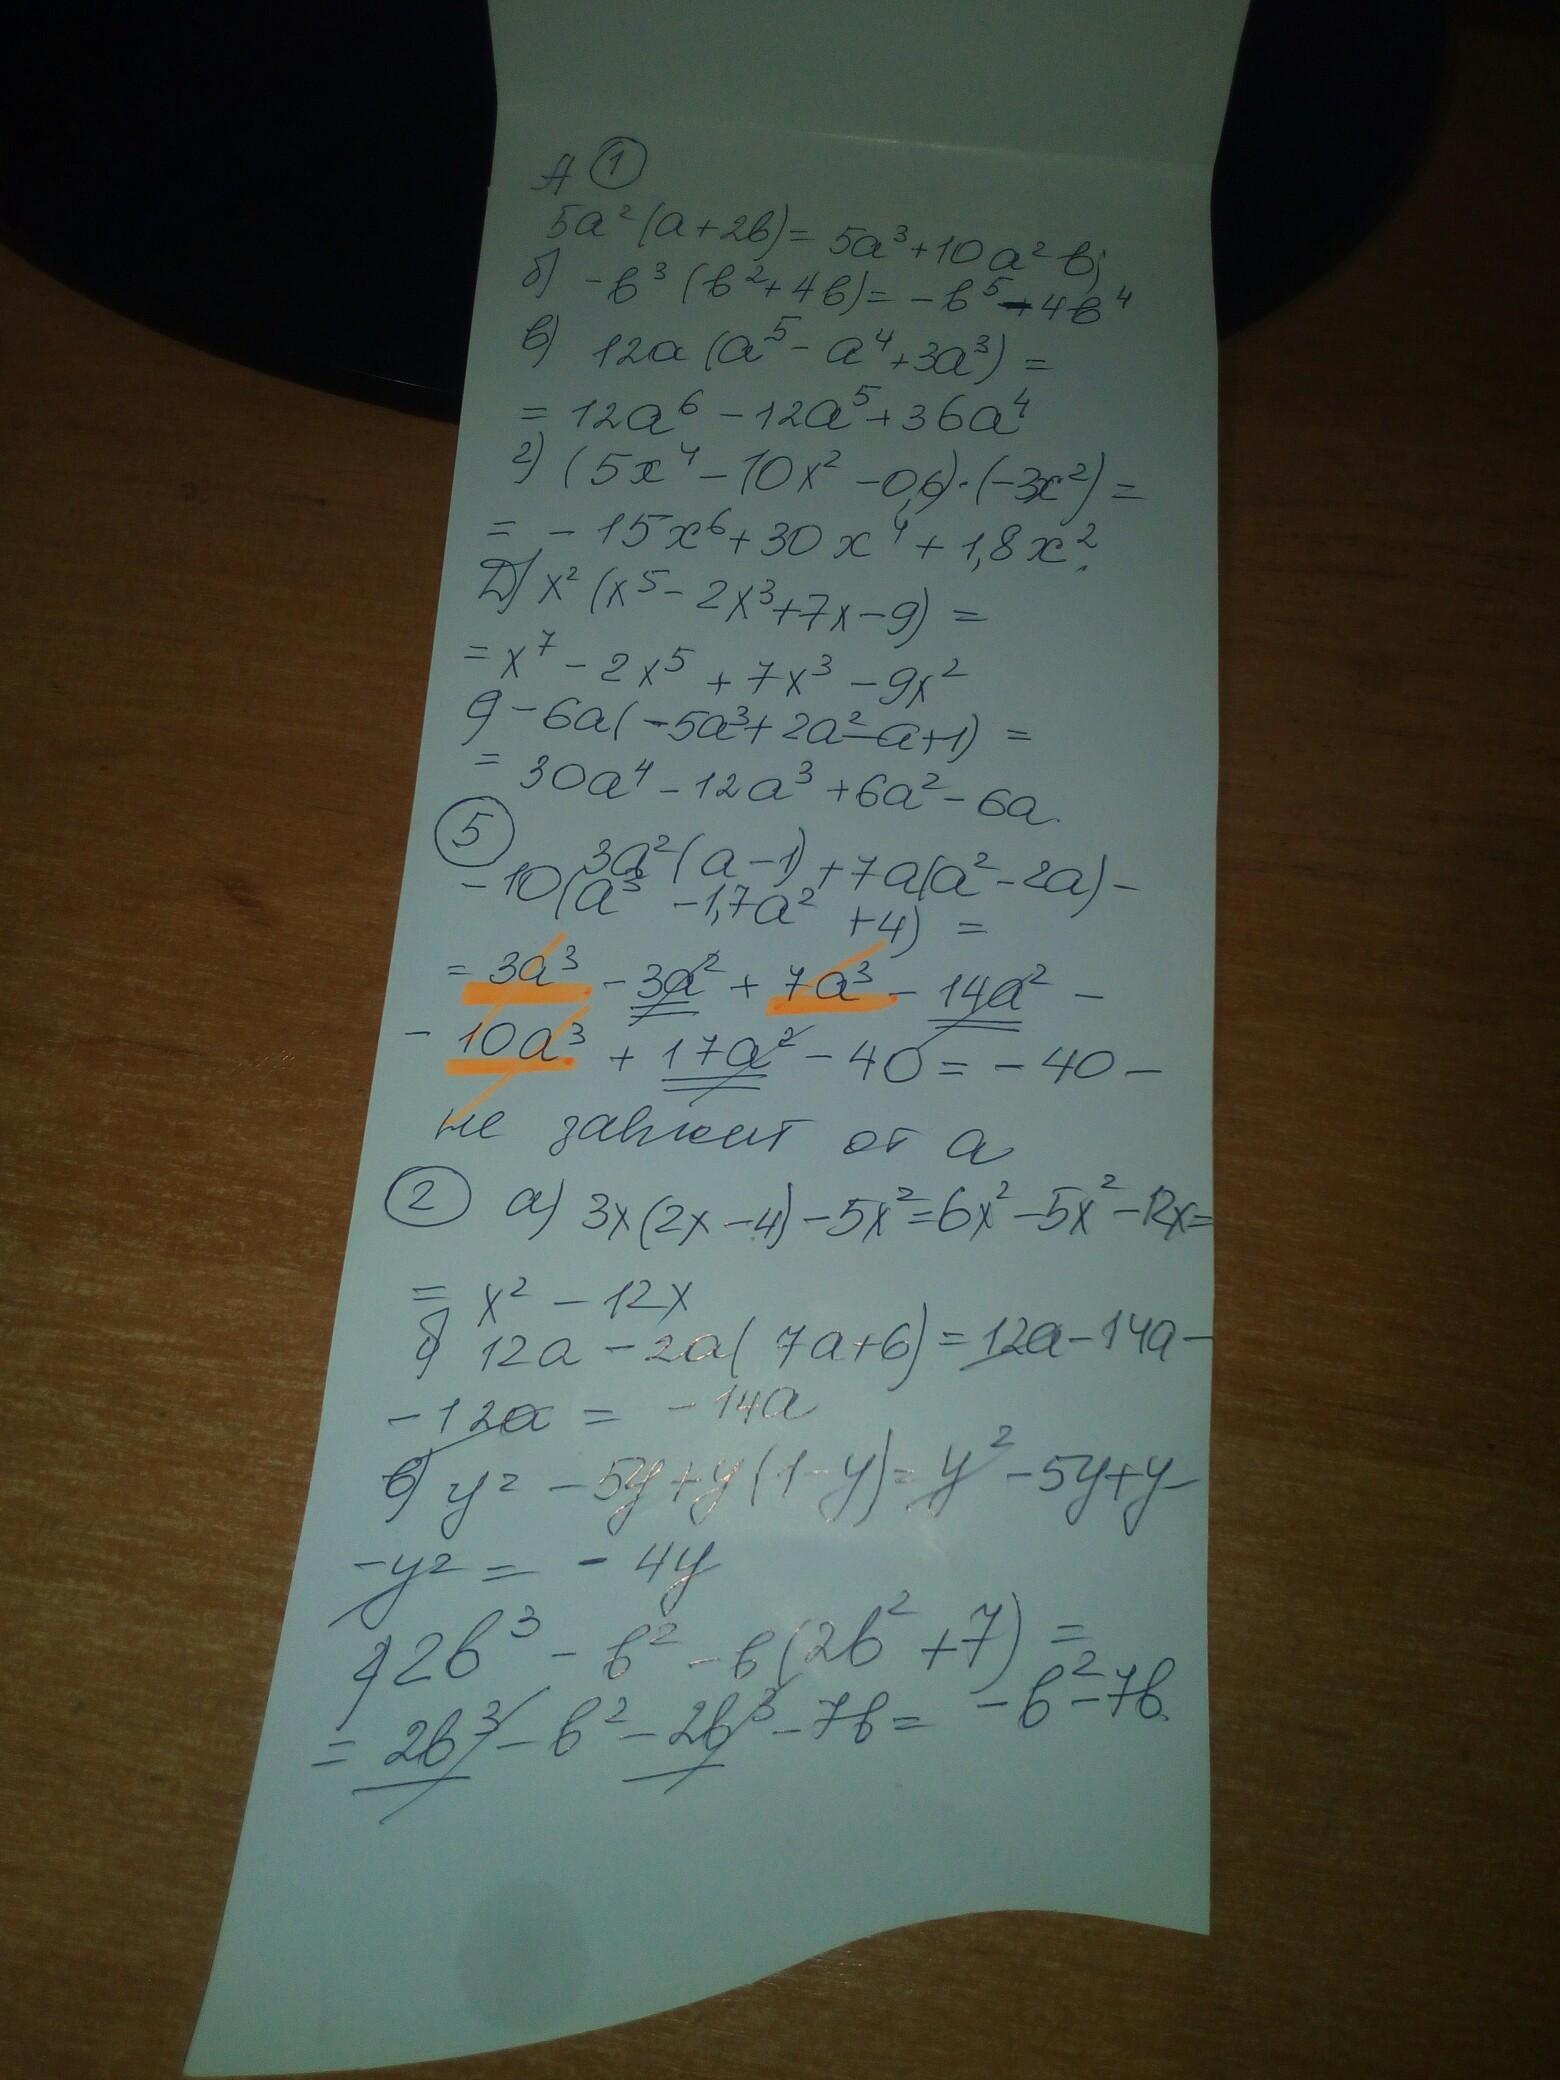 А ①
5a²(a+2b)= 5a³+10a²b;
б) -b³(b²+4b)= -b⁵-4b⁴
в) 12a(a⁵-a⁴+3a³)=
= 12a⁶-12a⁵+36a⁴
г) (5x⁴-10x²-0,6)·(-3x²)=
= -15x⁶+30x⁴+1,8x².
Д) x²(x⁵-2x³+7x-9)=
= x⁷-2x⁵+7x³-9x²
-6a(-5a³+2a²-a+1)=
= 30a⁴-12a³+6a²-6a.
⑤ 3a²(a-1)+7a(a²-2a)-
-10(a³-1,7a²+4)=
= 3a³-3a²+7a³-14a²-
-10a³+17a²-40=-40-
не зависит от a
② а) 3x(2x-4)-5x²=6x²-5x²-12x=
= x²-12x
б) 12a-2a(7a+6)=12a-14a-
-12a=-14a
в) y²-5y+y(1-y)=y²-5y+y-
-y²=-4y
г) 2b³-b²-b(2b²+7)=
= 2b³-b²-2b³-7b=-b²-7b.